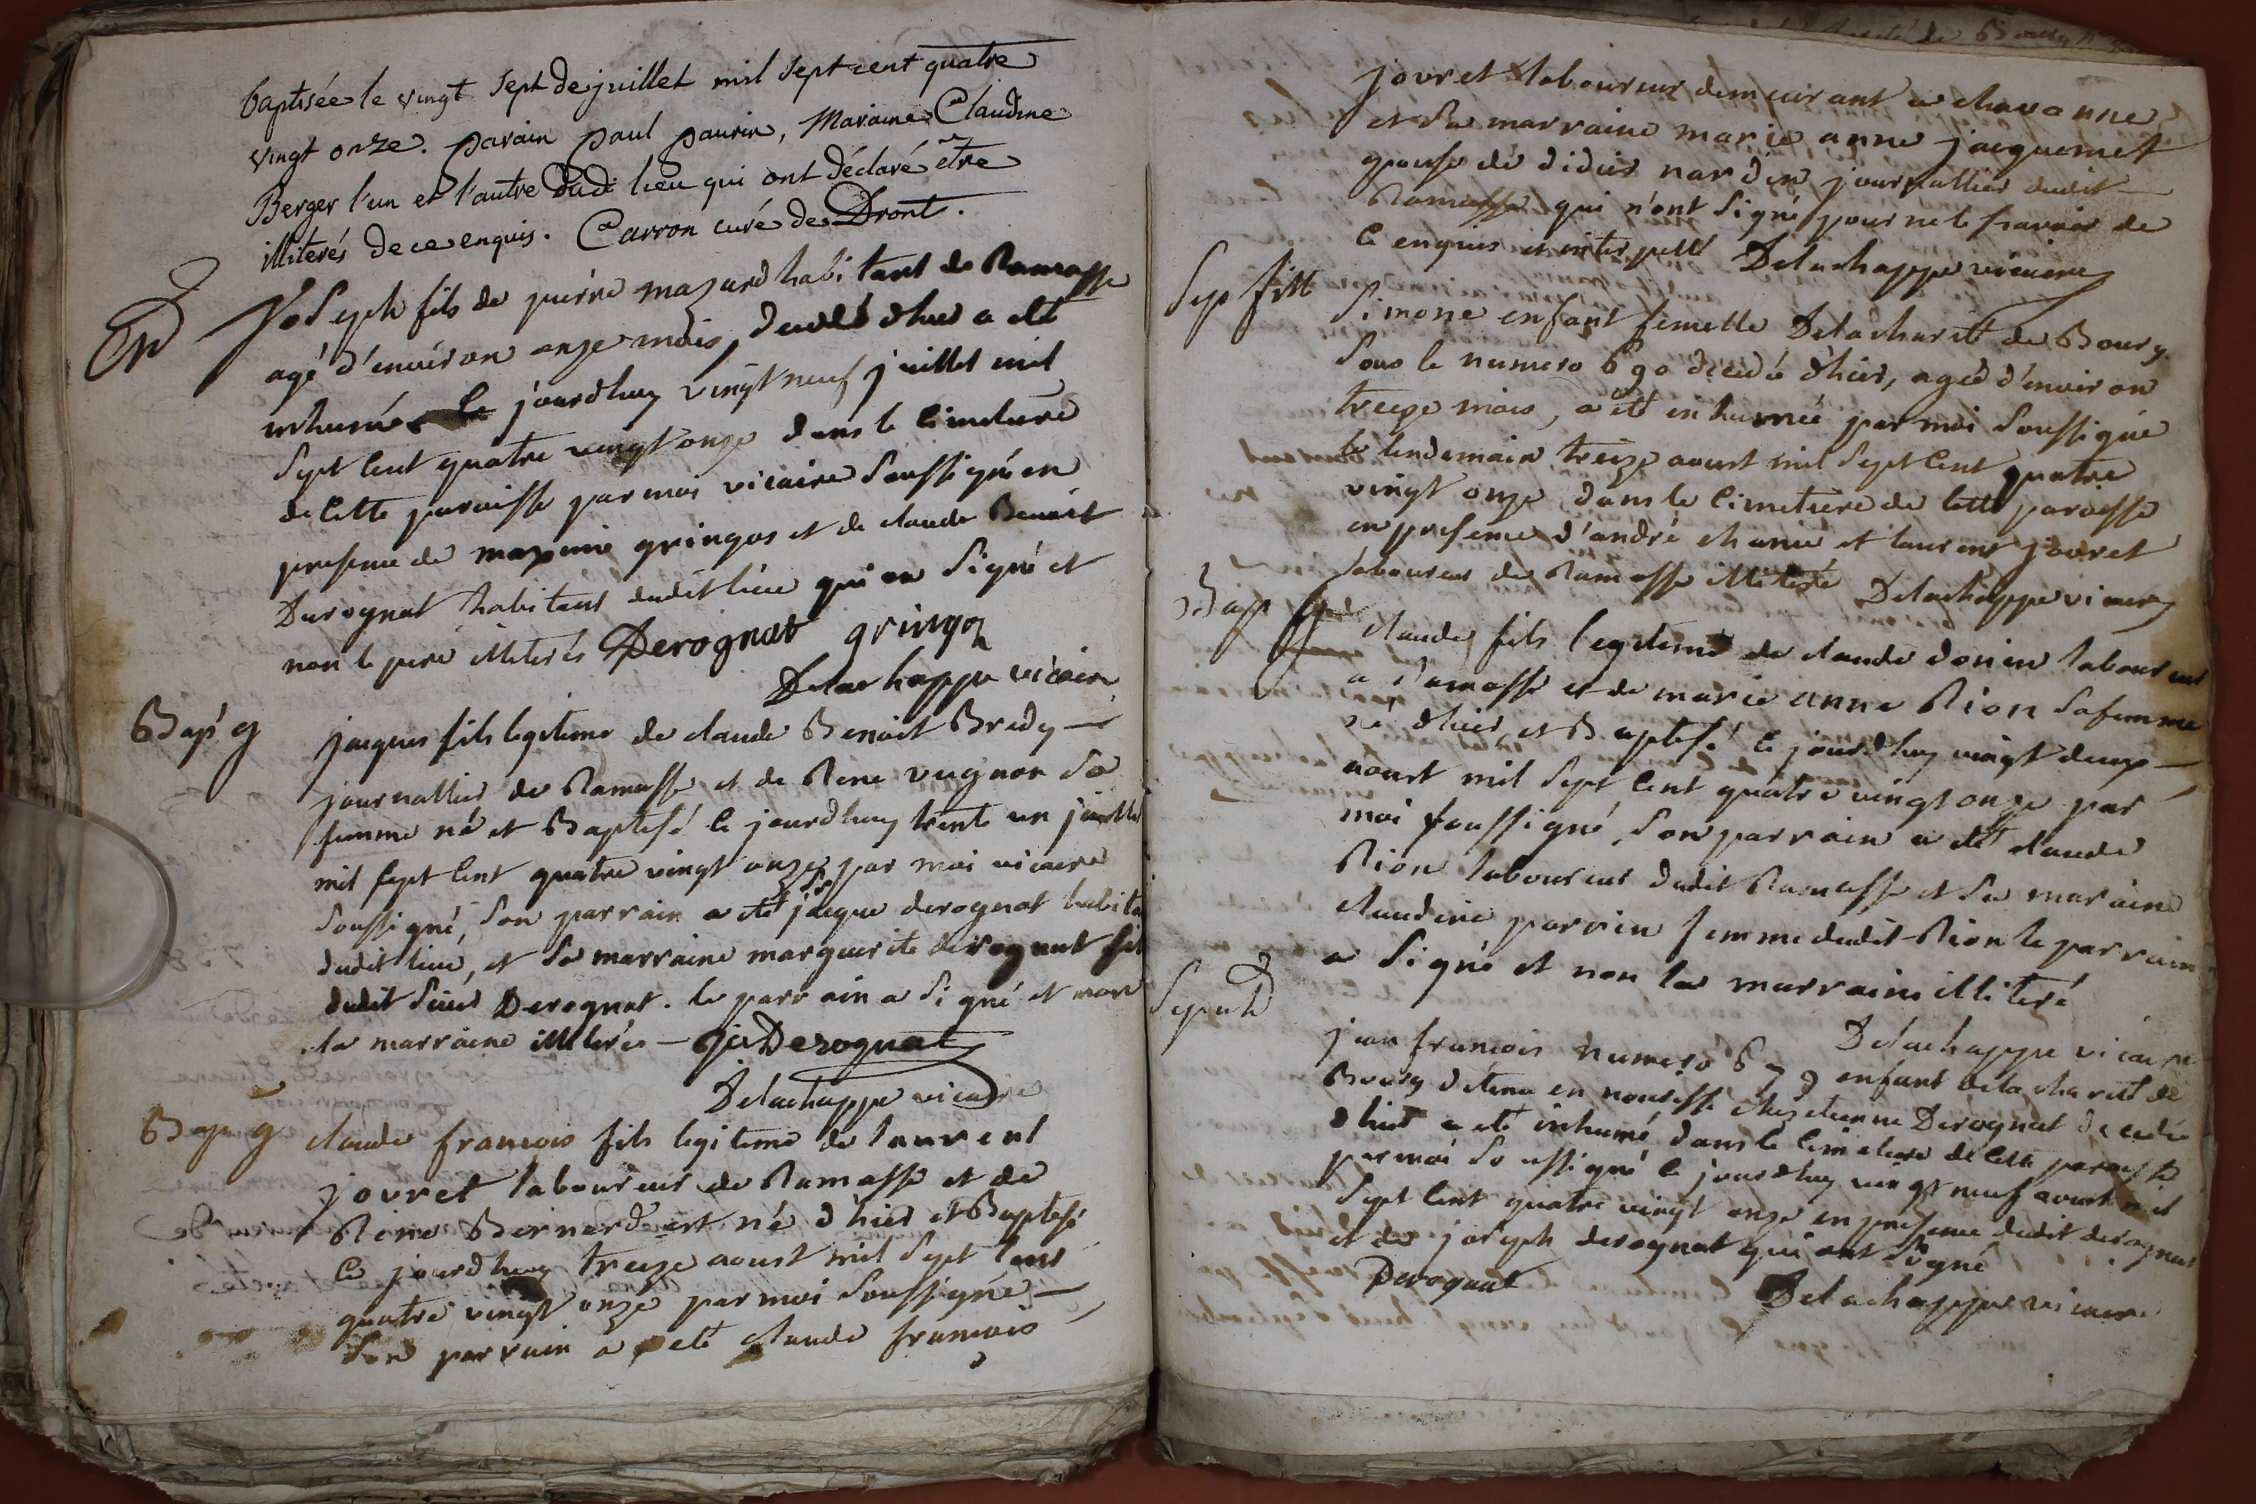 baptisée le vingt sept de juillet mil sept cent quatre
vingt onze. parain paul paurin, Maraine Claudine
Berger l'un et l'autre dudi lieu qui ont déclaré être
illiterés de ce enquis. Carron curé de Dront.
joseph fils de pierre mazard habitant de Ramasse
agé d'environ onze mois, décédé d'hier a été
inhumé ce jourdhuy vingt neuf juillet mil
Sept Cent quatre vingt onze dans le Cimetiere
de Cette paroisse par moi vicaire Soussigné en
presence de maxime gringoz et de claude Benoit
Durognat habitant dudit lieu qui on Signé et
non le pere illiterés Derognat gringoz
Delachappe vicaire
Bap g
jacques fils legitime de claude Benoit Bredy
journallier de Ramasse et de Rene vugnon Sa
femme né et Baptisé ce jourdhuy trente un juillet
mil sept Cent quatre vingt onze par moi vicaire
Soussigné, Son parrain a été Sr jacque derognat habita
dudit lieu, et Sa marraine marguerite derognat fil
dudit Sieur Derognat. le parrain a Signé et non
la marraine illiterés - Derognat
Delachappe vicaire
Bap g
claude francois fils legitime de laurent
jouret laboureur de Ramasse et de
Rene Bernard est né d'hier et Baptisé
Ce jourdhuy treize aoust mil Sept Cent
quatre vingt onze par moi Soussigné
Son parrain a été claude francois
jouret laboureur demeurant a chavanne
et Sa marraine marie anne jacquemet
epouse de didier nardin journallier dudit
Ramasse qui n'ont Signé pour ne le scavoir de
Ce enquis et interpellé Delachappe vicaire
Sep fill
Simone enfant femelle Delacharité de Bourg
Sous le numero 690 décedé d'hier, agée d'environ
treize mois, a été inhumée par moi Soussigné
le lendemain treize aoust mil Sept Cent quatre
vingt onze dans le Cimetiere de Cette paroisse
en presence d'andré chanié et laurent jouret
laboureur de Ramasse illiteré Delachappe vicaire
Bap g
claude fils legitime de claude donin laboureur
a Ramasse et de marie anne Rion Sa femme
né d'hier, et Baptisé ce jourdhuy vingt deux
aoust mil Sept Cent quatre vingt onze par
moi soussigné, Son parrain a été claude
Rion laboureur dudit Ramasse et Sa maraine
claudine parvin femme dudit Rion le parrain
a Signé et non la marraine illiteré
Delachappe vicaire
Sepult
jean francois numero enfant de la charité de
Bourg detenu en nourisse chez etienne Derognat decedé
d'hier a été inhumé dans le Cimetiere de Cette paroisse
par moi Soussigné ce jourdhuy vingt neuf aoust mil
Sept Cent quatre vingt onze en presence dudit derognat
et de joseph derognat qui ont Signé
Derognat Delachappe vicaire